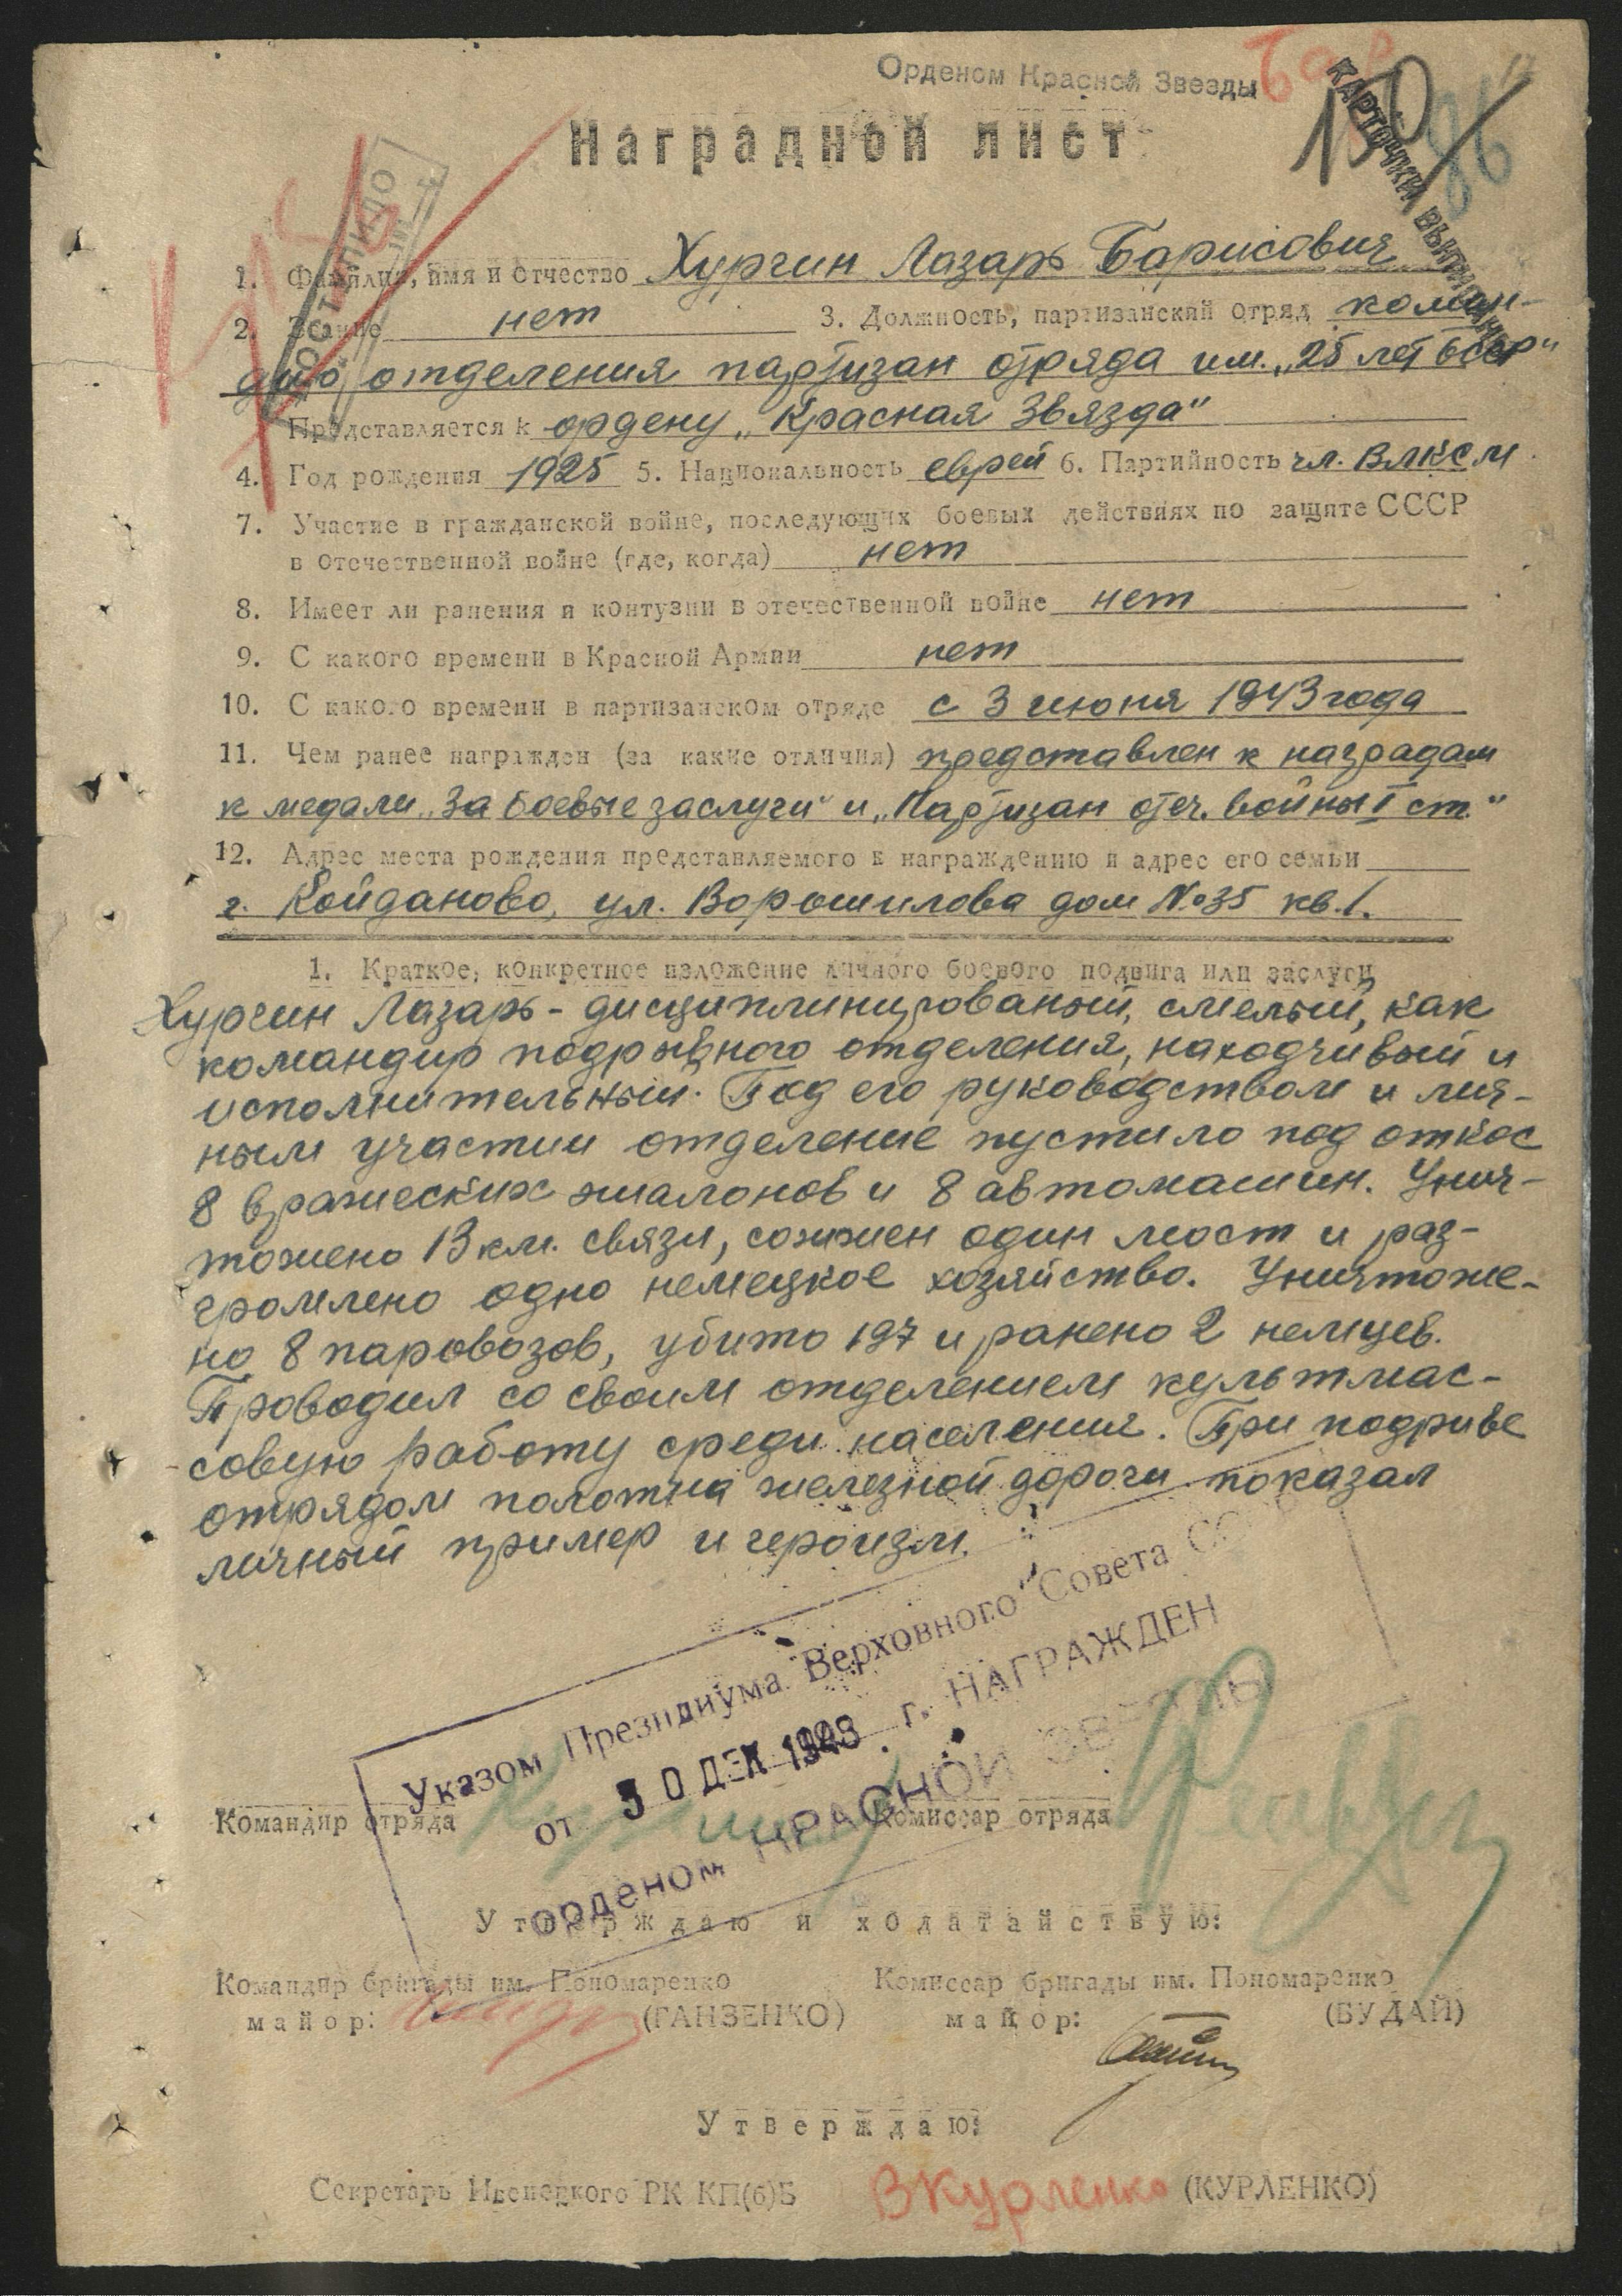 Орденом Красной Звезды
Наградной лист
1. Фамилия, имя и отчество Хургин Лазарь Борисович
2. Звание нет 3. Должность, партизанский отряд коман-
дир отделения партизан отряда им. „25 лет БССР"
Представляется к ордену „Красная Звязда"
4. Год рождения 1925 5. Национальность еврей 6. Партийность чл. ВЛКСМ
7. Участие в гражданской войне, последующих боевых действиях по защите СССР
в отечественной войне (где, когда) нет
8. Имеет ли ранения и контузии в отечественной войне нет
9. С какого времени в Красной Армии нет
10. С какого времени в партизанском отряде с 3 июня 1943 года
11. Чем ранее награжден (за какие отличия) представлен к наградам
к медали „За боевые заслуги" и „Партизан отеч. войны I ст."
12. Адрес места рождения представляемого к награждению и адрес его семьи
г. Койданово, ул. Ворошилова дом №35 кв. 1.
1. Краткое, конкретное изложение личного боевого подвига или заслуги
Хургин Лазарь - дисциплинированый, смелый, как
командир подрывного отделения, находчивый и
исполнительный. Под его руководством и лич-
ным участии отделение пустило под откос
8 вражеских эшалонов и 8 автомашин. Унич-
тожено 13 км. связи, сожжен один мост и раз-
громлено одно немецкое хозяйство. Уничтоже-
но 8 паровозов, убито 197 и ранено 2 немцев.
Проводил со своим отделением культмас-
совую работу среди населения. При подриве
отрядом полотна железной дороги показал
личный пример и героизм.
Указом Президиума Верховного Совета СССР
от 30 ДЕК 1948 г. НАГРАЖДЕН
орденом КРАСНОЙ ЗВЕЗДЫ
Командир отряда Комиссар отряда
Утверждаю и ходатайствую:
Командир бригады им. Пономаренко Комиссар бригады им. Пономаренко
майор: (ГАНЗЕНКО) майор: (БУДАЙ)
Утверждаю:
Секретарь Ивенецкого РК КП(б)Б ВКурленко (КУРЛЕНКО)